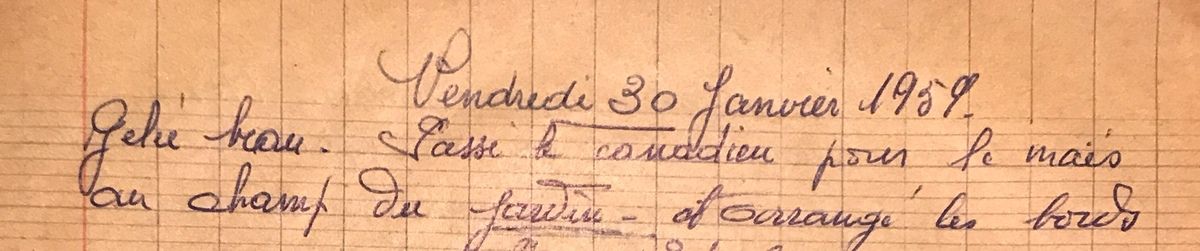 Vendredi 30 Janvier 1959.
Gelé beau. Passé le canadien pour le maïs
au champ du jardin - et arrangé les bords